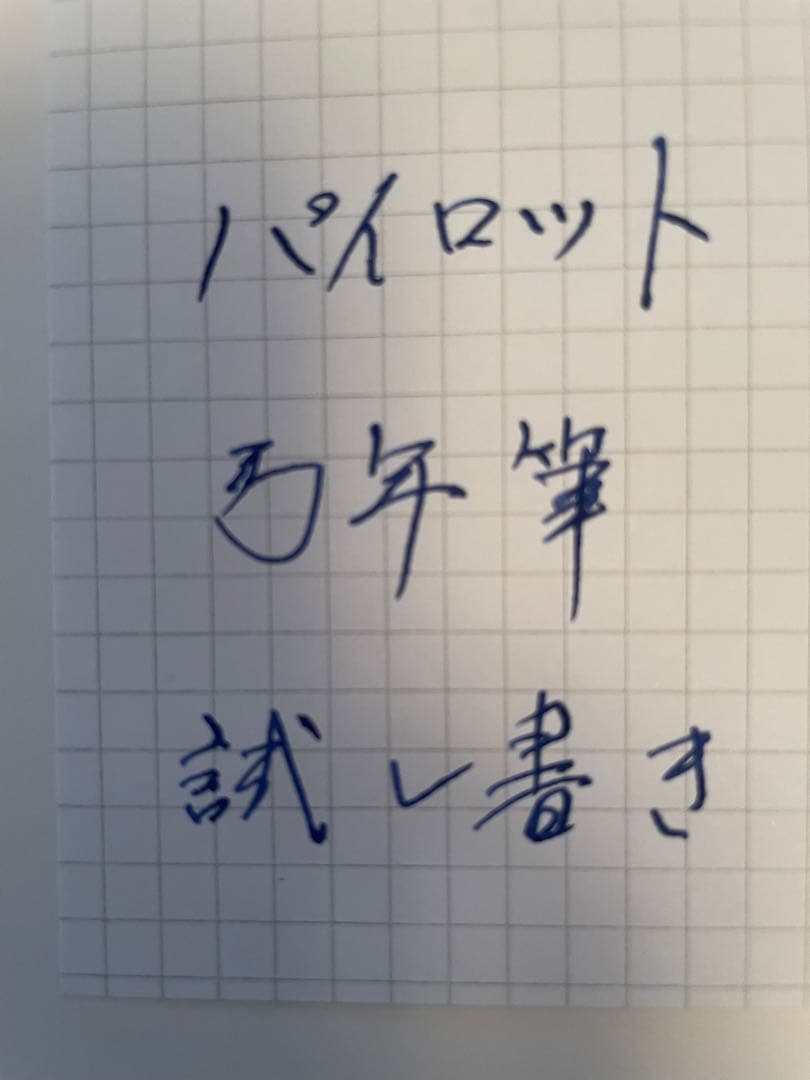 パイロット
万年筆
試し書き